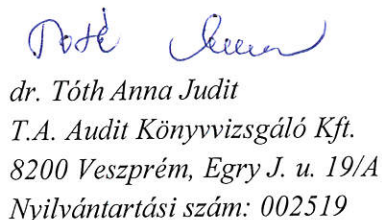 dr. Tóth Anna Judit
T.A. Audit Könyvvizsgáló Kft.
8200 Veszprém, Egry J. u. 19/A
Nyilvántartási szám: 002519